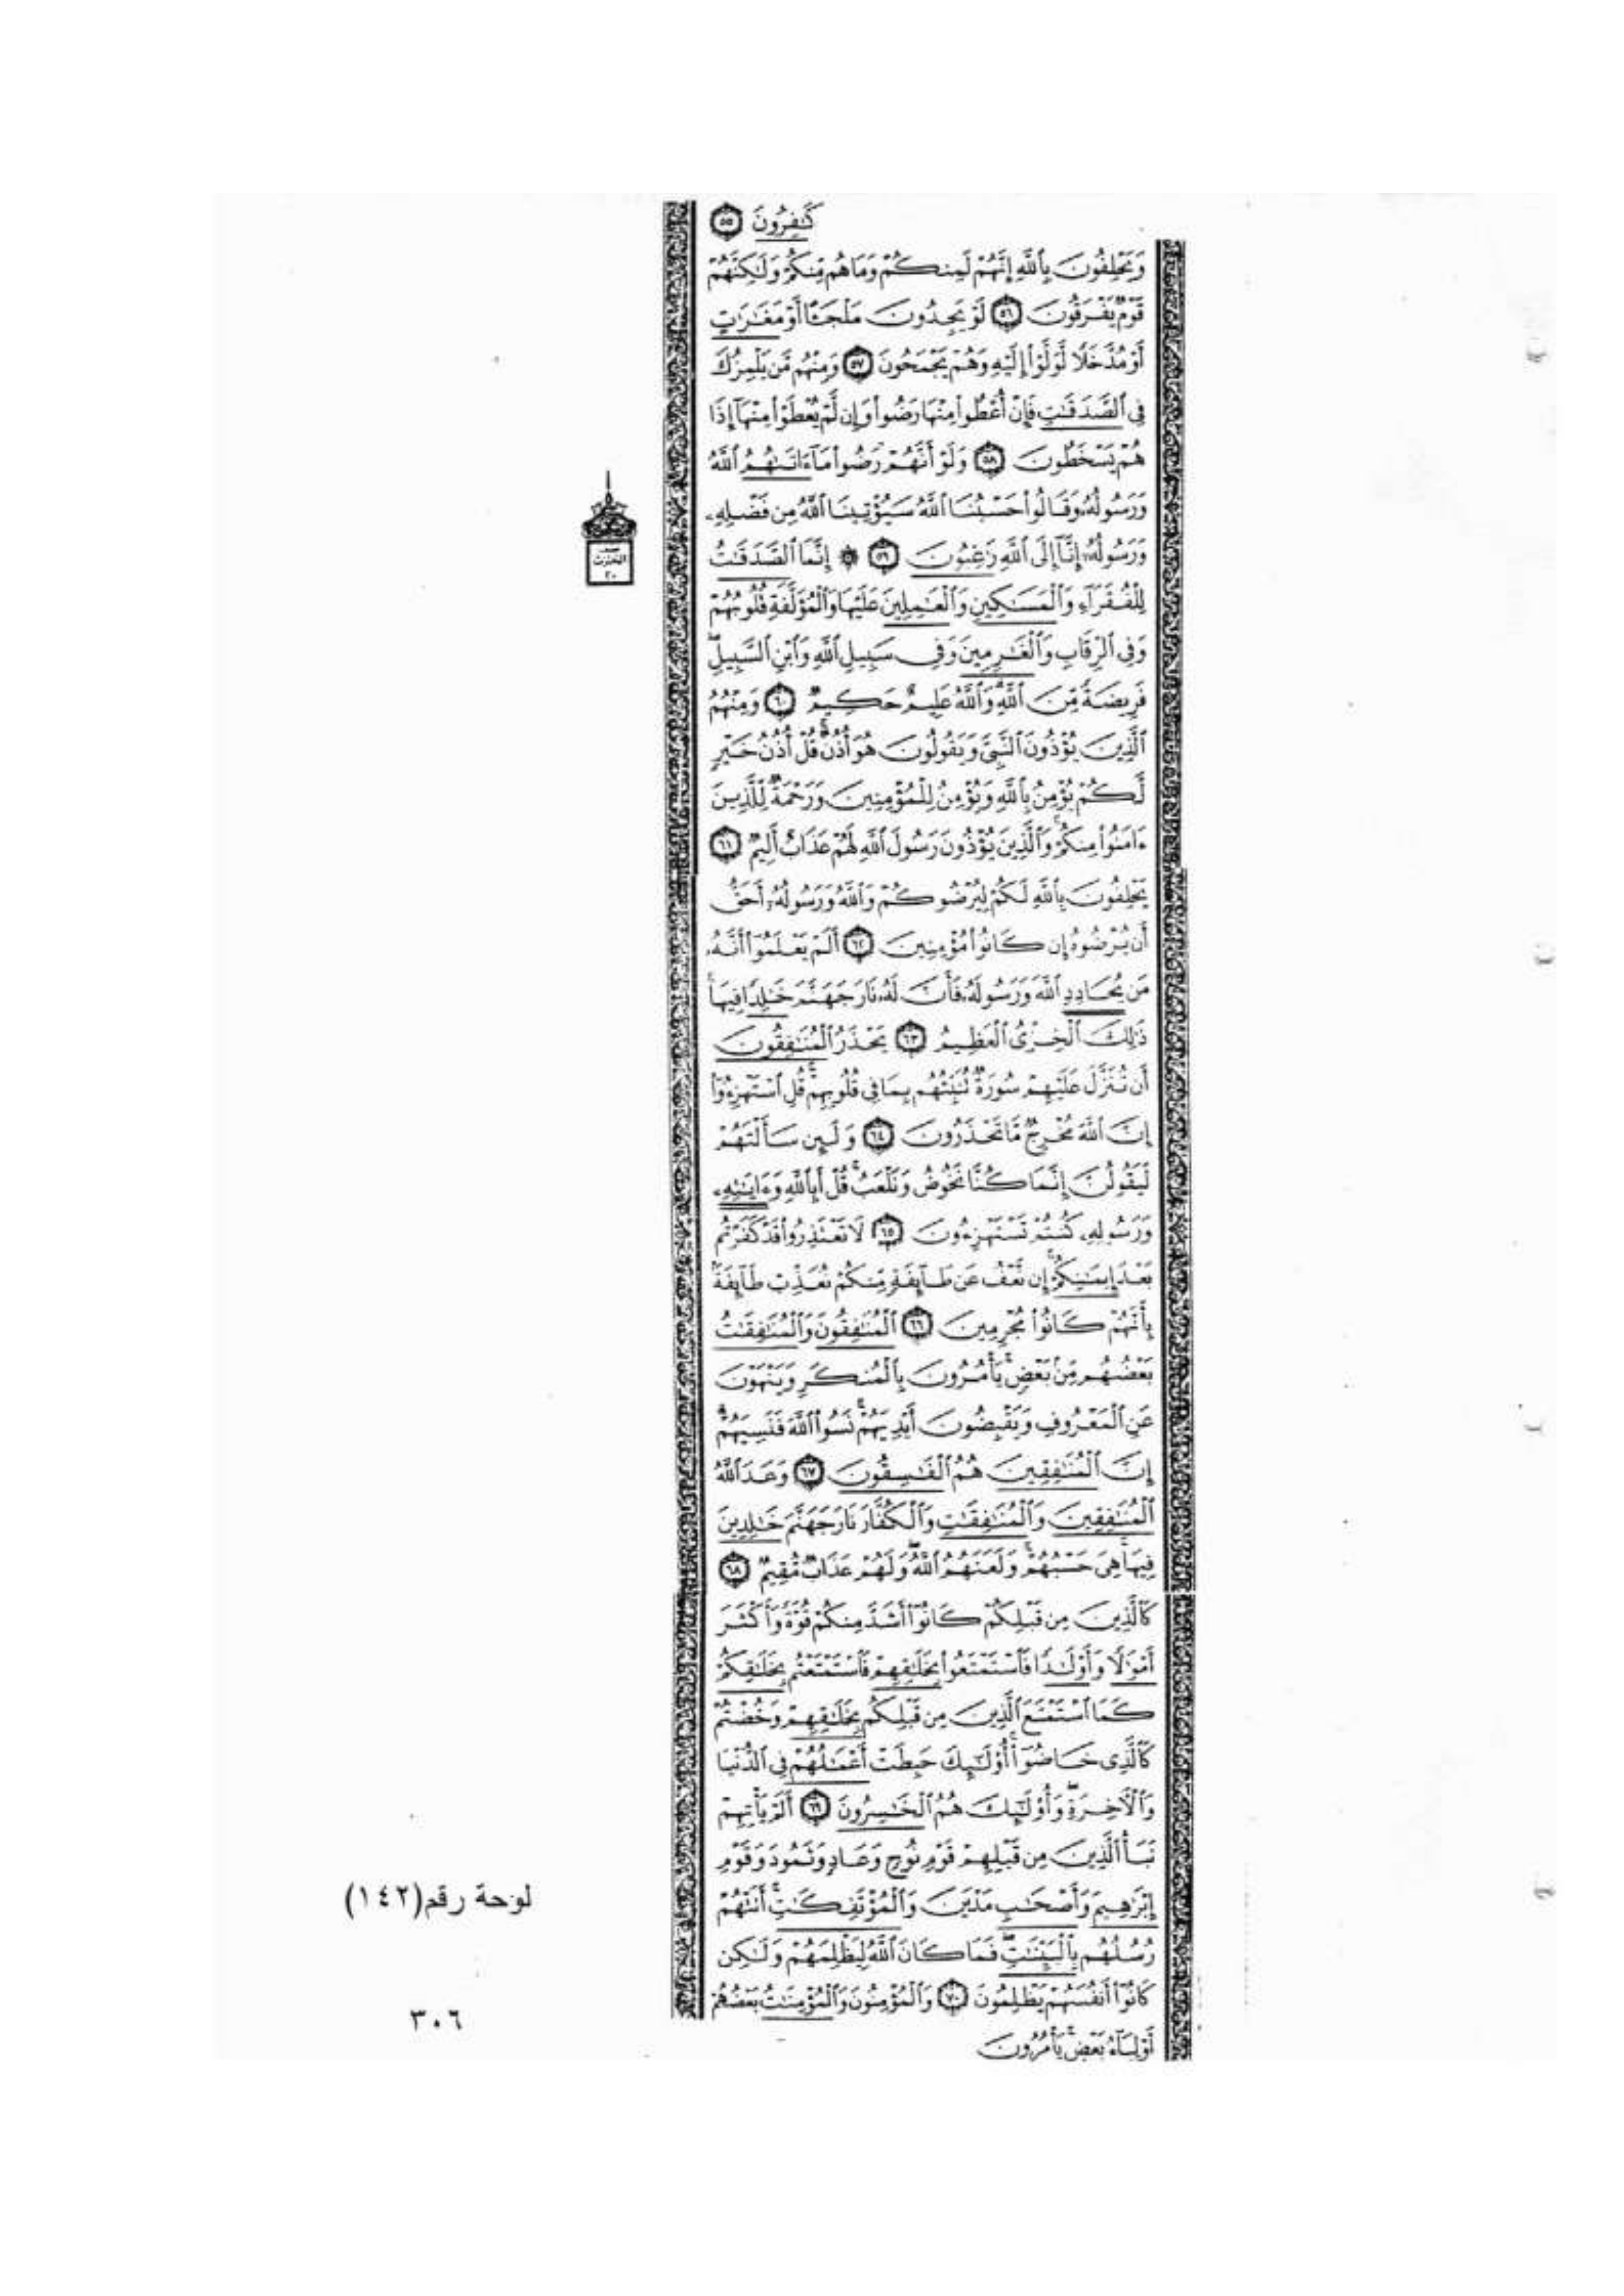 كَـٰفِرُونَ ٥٥
وَيَحْلِفُونَ بِٱللَّهِ إِنَّهُمْ لَمِنكُمْ وَمَا هُم مِّنكُمْ وَلَـٰكِنَّهُمْ
قَوْمٌ يَفْرَقُونَ ٥٦ لَوْ يَجِدُونَ مَلْجَـًٔا أَوْ مَغَـٰرَٰتٍ
أَوْ مُدَّخَلًا لَّوَلَّوْا۟ إِلَيْهِ وَهُمْ يَجْمَحُونَ ٥٧ وَمِنْهُم مَّن يَلْمِزُكَ
فِى ٱلصَّدَقَـٰتِ فَإِنْ أُعْطُوا۟ مِنْهَا رَضُوا۟ وَإِن لَّمْ يُعْطَوْا۟ مِنْهَآ إِذَا
هُمْ يَسْخَطُونَ ٥٨ وَلَوْ أَنَّهُمْ رَضُوا۟ مَآ ءَاتَىٰهُمُ ٱللَّهُ
وَرَسُولُهُۥ وَقَالُوا۟ حَسْبُنَا ٱللَّهُ سَيُؤْتِينَا ٱللَّهُ مِن فَضْلِهِۦ
وَرَسُولُهُۥٓ إِنَّآ إِلَى ٱللَّهِ رَٰغِبُونَ ٥٩ ۞ إِنَّمَا ٱلصَّدَقَـٰتُ
لِلْفُقَرَآءِ وَٱلْمَسَـٰكِينِ وَٱلْعَـٰمِلِينَ عَلَيْهَا وَٱلْمُؤَلَّفَةِ قُلُوبُهُمْ
وَفِى ٱلرِّقَابِ وَٱلْغَـٰرِمِينَ وَفِى سَبِيلِ ٱللَّهِ وَٱبْنِ ٱلسَّبِيلِ ۖ
فَرِيضَةً مِّنَ ٱللَّهِ ۗ وَٱللَّهُ عَلِيمٌ حَكِيمٌ ٦٠ وَمِنْهُمُ
ٱلَّذِينَ يُؤْذُونَ ٱلنَّبِىَّ وَيَقُولُونَ هُوَ أُذُنٌ ۚ قُلْ أُذُنُ خَيْرٍ
لَّكُمْ يُؤْمِنُ بِٱللَّهِ وَيُؤْمِنُ لِلْمُؤْمِنِينَ وَرَحْمَةٌ لِّلَّذِينَ
ءَامَنُوا۟ مِنكُمْ ۚ وَٱلَّذِينَ يُؤْذُونَ رَسُولَ ٱللَّهِ لَهُمْ عَذَابٌ أَلِيمٌ ٦١
يَحْلِفُونَ بِٱللَّهِ لَكُمْ لِيُرْضُوكُمْ وَٱللَّهُ وَرَسُولُهُۥٓ أَحَقُّ
أَن يُرْضُوهُ إِن كَانُوا۟ مُؤْمِنِينَ ٦٢ أَلَمْ يَعْلَمُوٓا۟ أَنَّهُۥ
مَن يُحَادِدِ ٱللَّهَ وَرَسُولَهُۥ فَأَنَّ لَهُۥ نَارَ جَهَنَّمَ خَـٰلِدًا فِيهَا ۚ
ذَٰلِكَ ٱلْخِزْىُ ٱلْعَظِيمُ ٦٣ يَحْذَرُ ٱلْمُنَـٰفِقُونَ
أَن تُنَزَّلَ عَلَيْهِمْ سُورَةٌ تُنَبِّئُهُم بِمَا فِى قُلُوبِهِمْ ۚ قُلِ ٱسْتَهْزِءُوٓا۟
إِنَّ ٱللَّهَ مُخْرِجٌ مَّا تَحْذَرُونَ ٦٤ وَلَئِن سَأَلْتَهُمْ
لَيَقُولُنَّ إِنَّمَا كُنَّا نَخُوضُ وَنَلْعَبُ ۚ قُلْ أَبِٱللَّهِ وَءَايَـٰتِهِۦ
وَرَسُولِهِۦ كُنتُمْ تَسْتَهْزِءُونَ ٦٥ لَا تَعْتَذِرُوا۟ قَدْ كَفَرْتُم
بَعْدَ إِيمَـٰنِكُمْ ۚ إِن نَّعْفُ عَن طَآئِفَةٍ مِّنكُمْ نُعَذِّبْ طَآئِفَةًۢ
بِأَنَّهُمْ كَانُوا۟ مُجْرِمِينَ ٦٦ ٱلْمُنَـٰفِقُونَ وَٱلْمُنَـٰفِقَـٰتُ
بَعْضُهُم مِّنۢ بَعْضٍ ۚ يَأْمُرُونَ بِٱلْمُنكَرِ وَيَنْهَوْنَ
عَنِ ٱلْمَعْرُوفِ وَيَقْبِضُونَ أَيْدِيَهُمْ ۚ نَسُوا۟ ٱللَّهَ فَنَسِيَهُمْ ۗ
إِنَّ ٱلْمُنَـٰفِقِينَ هُمُ ٱلْفَـٰسِقُونَ ٦٧ وَعَدَ ٱللَّهُ
ٱلْمُنَـٰفِقِينَ وَٱلْمُنَـٰفِقَـٰتِ وَٱلْكُفَّارَ نَارَ جَهَنَّمَ خَـٰلِدِينَ
فِيهَا ۚ هِىَ حَسْبُهُمْ ۚ وَلَعَنَهُمُ ٱللَّهُ ۖ وَلَهُمْ عَذَابٌ مُّقِيمٌ ٦٨
كَٱلَّذِينَ مِن قَبْلِكُمْ كَانُوٓا۟ أَشَدَّ مِنكُمْ قُوَّةً وَأَكْثَرَ
أَمْوَٰلًا وَأَوْلَـٰدًا فَٱسْتَمْتَعُوا۟ بِخَلَـٰقِهِمْ فَٱسْتَمْتَعْتُم بِخَلَـٰقِكُمْ
كَمَا ٱسْتَمْتَعَ ٱلَّذِينَ مِن قَبْلِكُم بِخَلَـٰقِهِمْ وَخُضْتُمْ
كَٱلَّذِى خَاضُوٓا۟ ۚ أُو۟لَـٰٓئِكَ حَبِطَتْ أَعْمَـٰلُهُمْ فِى ٱلدُّنْيَا
وَٱلْـَٔاخِرَةِ ۖ وَأُو۟لَـٰٓئِكَ هُمُ ٱلْخَـٰسِرُونَ ٦٩ أَلَمْ يَأْتِهِمْ
نَبَأُ ٱلَّذِينَ مِن قَبْلِهِمْ قَوْمِ نُوحٍ وَعَادٍ وَثَمُودَ وَقَوْمِ
إِبْرَٰهِيمَ وَأَصْحَـٰبِ مَدْيَنَ وَٱلْمُؤْتَفِكَـٰتِ ۚ أَتَتْهُمْ
رُسُلُهُم بِٱلْبَيِّنَـٰتِ ۖ فَمَا كَانَ ٱللَّهُ لِيَظْلِمَهُمْ وَلَـٰكِن
كَانُوٓا۟ أَنفُسَهُمْ يَظْلِمُونَ ٧٠ وَٱلْمُؤْمِنُونَ وَٱلْمُؤْمِنَـٰتُ بَعْضُهُمْ
أَوْلِيَآءُ بَعْضٍ ۚ يَأْمُرُونَ
لوحة رقم(١٤٢)
٣٠٦